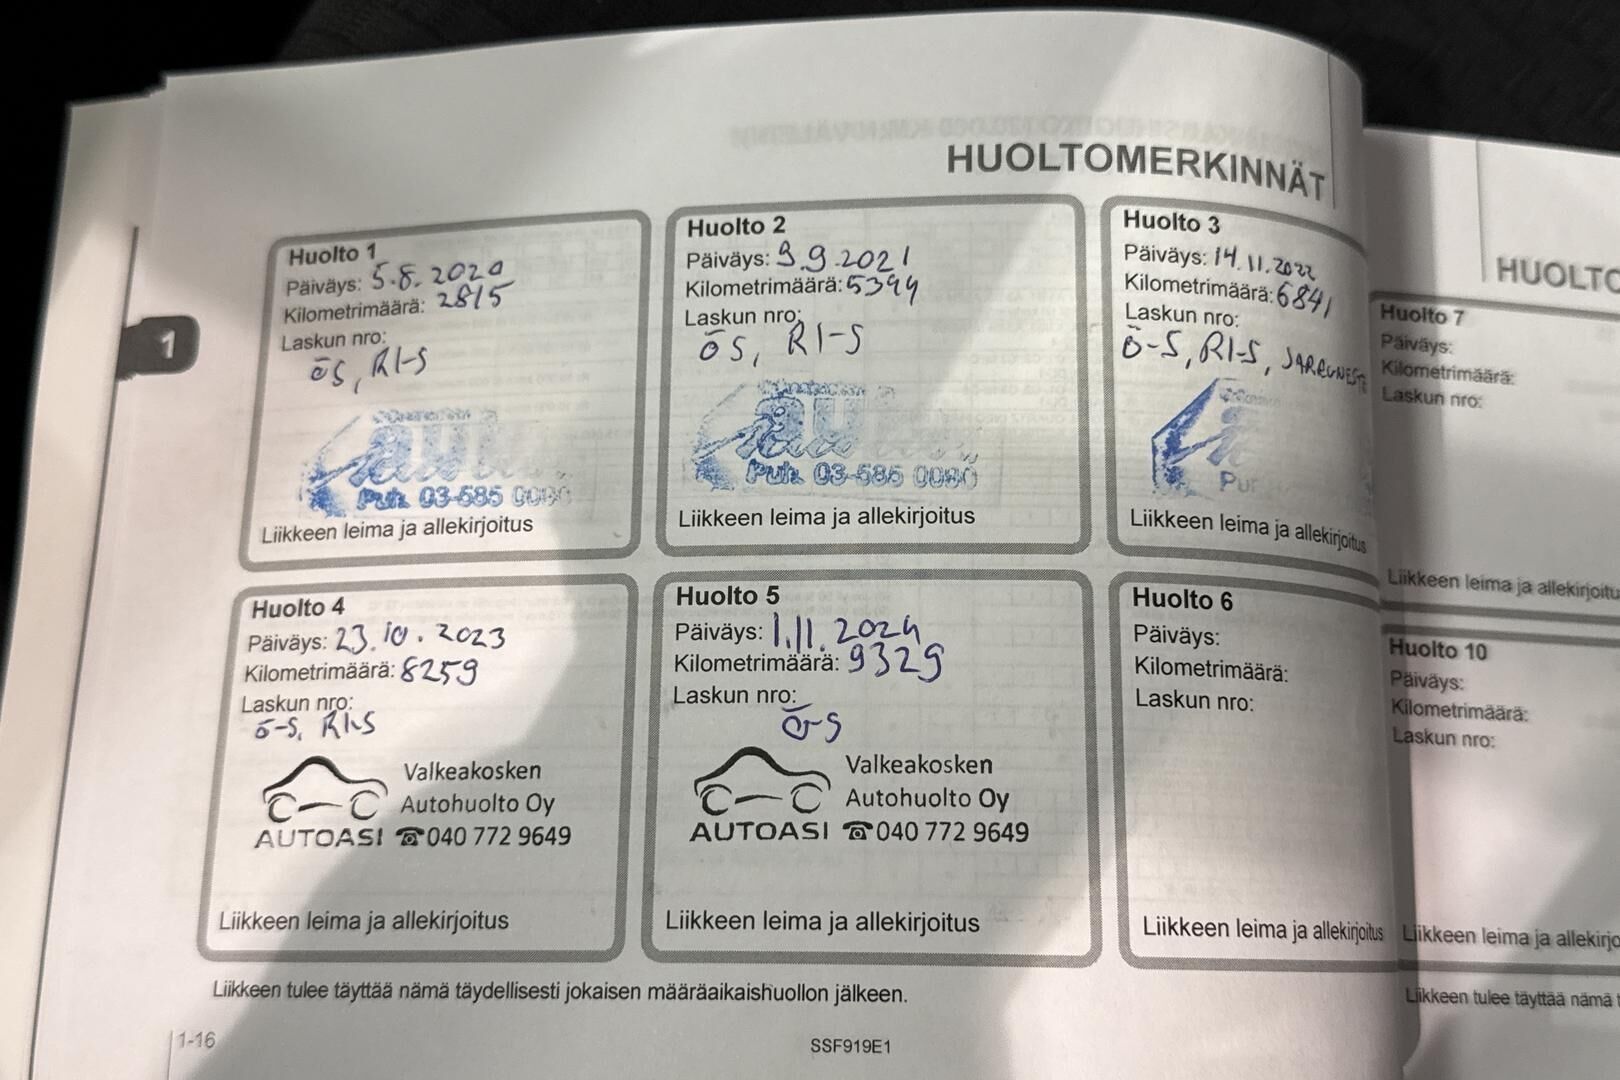 HUOLTOMERKINNÄT
Huolto 1
Päiväys: 5.8.2020
Kilometrimäärä: 2815
Laskun nro:
ÖS, RI-S
Puh. 03-585 0090
Liikkeen leima ja allekirjoitus
Huolto 2
Päiväys: 9.9.2021
Kilometrimäärä: 5394
Laskun nro:
ÖS, RI-S
Puh. 03-585 0090
Liikkeen leima ja allekirjoitus
Huolto 3
Päiväys: 14.11.2022
Kilometrimäärä: 6841
Laskun nro:
Ö-S, RI-S, JARRUNESTE
Liikkeen leima ja allekirjoitus
1
Huolto 4
Päiväys: 23.10.2023
Kilometrimäärä: 8259
Laskun nro:
Ö-S, RI-S
Valkeakosken
Autohuolto Oy
AUTOASI ☎040 772 9649
Liikkeen leima ja allekirjoitus
Huolto 5
Päiväys: 1.11.2024
Kilometrimäärä: 9329
Laskun nro:
Ö-S
Valkeakosken
Autohuolto Oy
AUTOASI ☎040 772 9649
Liikkeen leima ja allekirjoitus
Huolto 6
Päiväys:
Kilometrimäärä:
Laskun nro:
Liikkeen leima ja allekirjoitus
Liikkeen tulee täyttää nämä täydellisesti jokaisen määräaikaishuollon jälkeen.
1-16
SSF919E1
HUOLTO
Huolto 7
Päiväys:
Kilometrimäärä:
Laskun nro:
Liikkeen leima ja allekirjoitu
Huolto 10
Päiväys:
Kilometrimäärä:
Laskun nro:
Liikkeen leima ja allekirjo
Liikkeen tulee täyttää nämä t